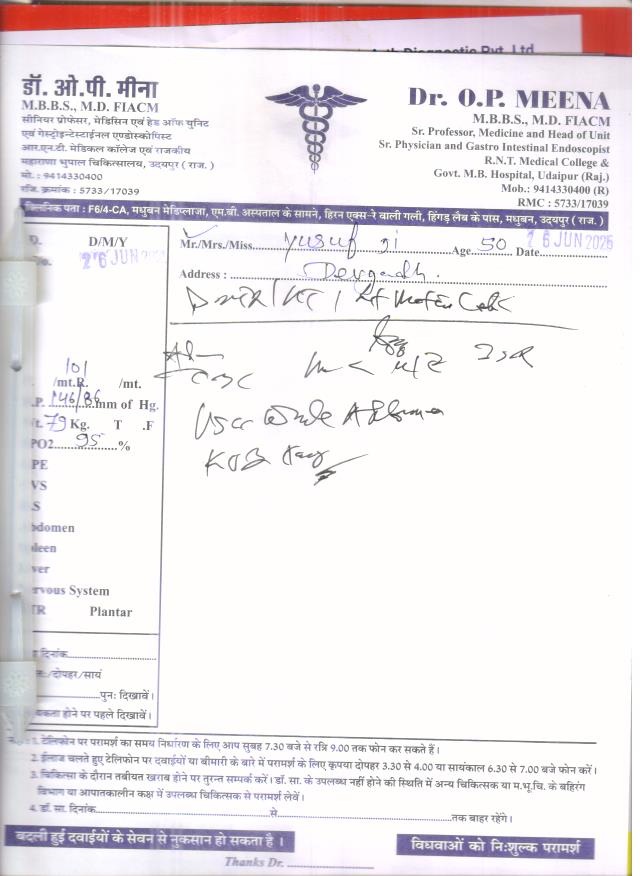 डॉ. ओ.पी. मीना
M.B.B.S., M.D. FIACM
सीनियर प्रोफेसर, मेडिसिन एवं हेड ऑफ युनिट
एवं गेस्ट्रोइन्टेस्टाईनल एण्डोस्कोपिस्ट
आर.एन.टी. मेडिकल कॉलेज एवं राजकीय
महाराणा भुपाल चिकित्सालय, उदयपुर ( राज. )
मो. : 9414330400
रजि. क्रमांक : 5733/17039
Dr. O.P. MEENA
M.B.B.S., M.D. FIACM
Sr. Professor, Medicine and Head of Unit
Sr. Physician and Gastro Intestinal Endoscopist
R.N.T. Medical College &
Govt. M.B. Hospital, Udaipur (Raj.)
Mob.: 9414330400 (R)
RMC : 5733/17039
क्लिनिक पता : F6/4-CA, मधुबन मेडिप्लाजा, एम.बी. अस्पताल के सामने, हिरन एक्स-रे वाली गली, हिंगड़ लैब के पास, मधुबन, उदयपुर ( राज. )
D/M/Y
26 JUN
Mr./Mrs./Miss. Yusuf ji Age 50 Date 26 JUN 2025
Address : Devgadh.
CBC
USG Whole Abdomen
KUB Xray
101
/mt.R. /mt.
.P. 146/86 mm of Hg.
79 Kg. T .F
PO2 95 %
PE
VS
.S
bdomen
leen
ver
rvous System
TR Plantar
दिनांक
/दोपहर/सायं
पुनः दिखावें।
होने पर पहले दिखावें।
1. टेलिफोन पर परामर्श का समय निर्धारण के लिए आप सुबह 7.30 बजे से रात्रि 9.00 तक फोन कर सकते हैं।
2. ईलाज चलते हुए टेलिफोन पर दवाईयों या बीमारी के बारे में परामर्श के लिए कृपया दोपहर 3.30 से 4.00 या सायंकाल 6.30 से 7.00 बजे फोन करें।
3. चिकित्सा के दौरान तबीयत खराब होने पर तुरन्त सम्पर्क करें। डॉ. सा. के उपलब्ध नहीं होने की स्थिति में अन्य चिकित्सक या म.भू.चि. के बहिरंग
विभाग या आपातकालीन कक्ष में उपलब्ध चिकित्सक से परामर्श लेवें।
4. डॉ. सा. दिनांक से तक बाहर रहेंगे।
बदली हुई दवाईयों के सेवन से नुकसान हो सकता है।
विधवाओं को निःशुल्क परामर्श
Thanks Dr.